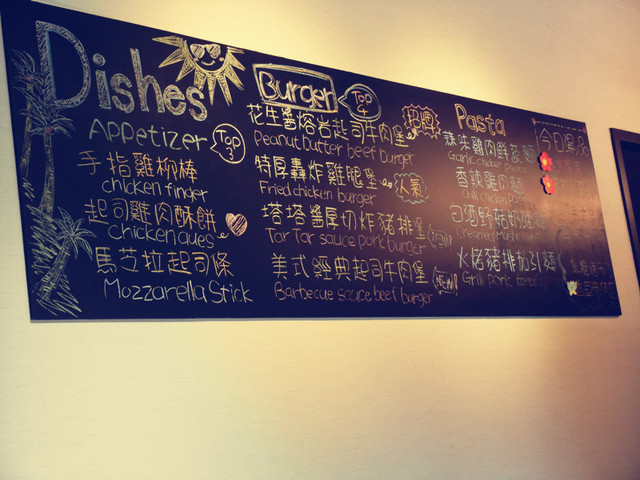 Dishes
APPetizer
Top 3
手指雞柳棒
chicken finger
起司雞肉酥餅
chicken ques
馬芝拉起司條
Mozzarella Stick
Burger
Top 4
花生醬熔岩起司牛肉堡
招牌
Peanut butter beef burger
特厚轟炸雞腿堡
人氣
Fried chicken burger
塔塔醬厚切炸豬排堡
Tar Tar sauce pork burger
美式經典起司牛肉堡
Barbecue sauce beef burger
Pasta
蒜味雞肉
Garlic chicken pasta
香辣雞肉麵
Chili chicken
白酒野菇奶油麵
Creamy
火烤豬排
Grill pork
今日